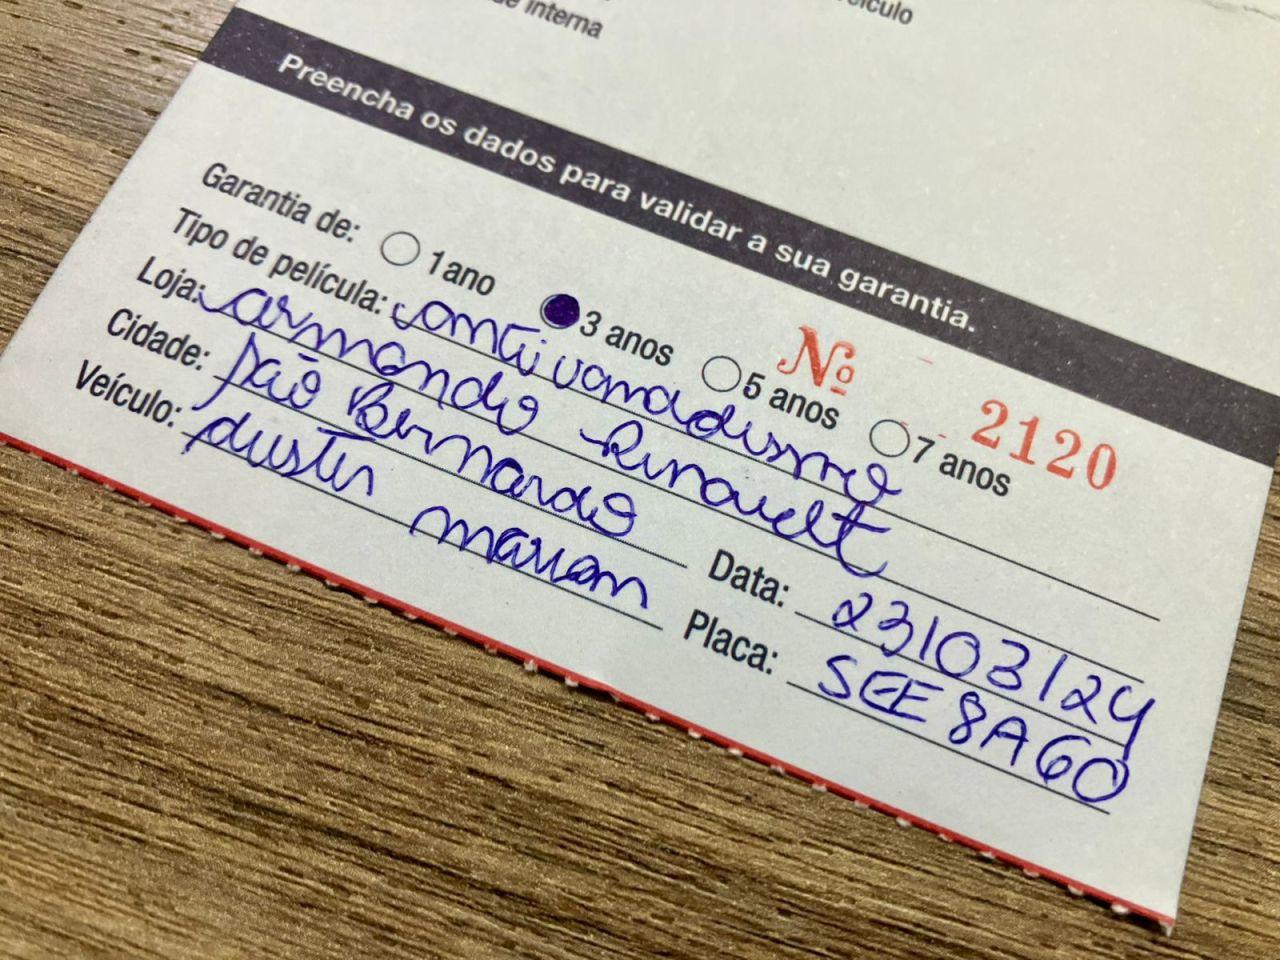 de interna
veículo
Preencha os dados para validar a sua garantia.
Garantia de: 1 ano 3 anos 5 anos 7 anos
Nº 2120
Tipo de película: antivandismo
Loja: armando Renault
Cidade: são Bernardo Data: 23/03/24
Veículo: duster marrom Placa: SEE8A60